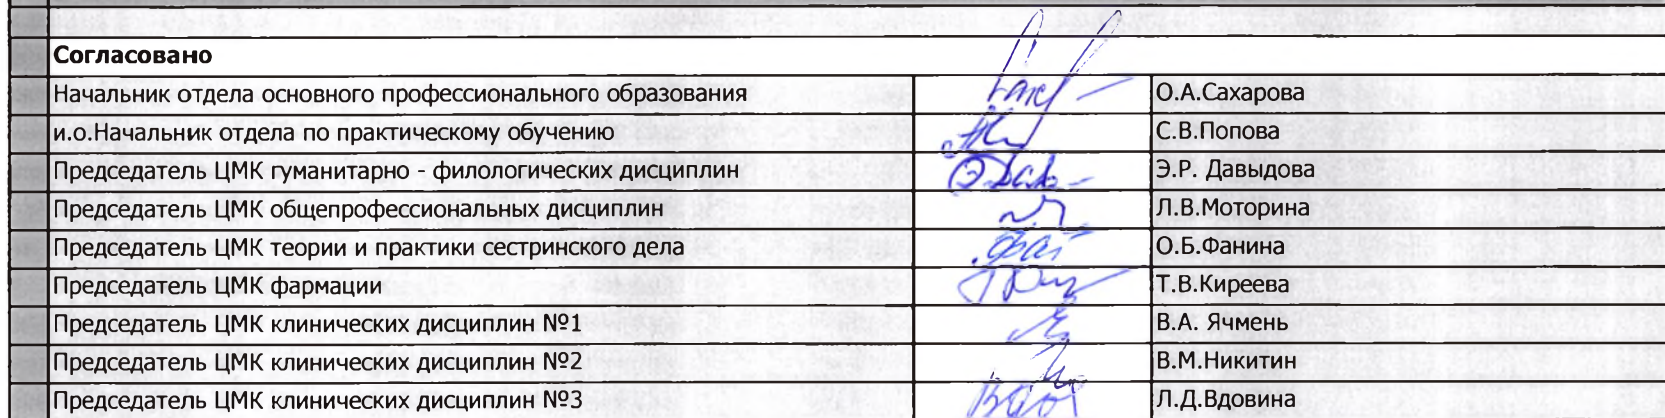 Согласовано
Начальник отдела основного профессионального образования О.А.Сахарова
и.о.Начальник отдела по практическому обучению С.В.Попова
Председатель ЦМК гуманитарно - филологических дисциплин Э.Р. Давыдова
Председатель ЦМК общепрофессиональных дисциплин Л.В.Моторина
Председатель ЦМК теории и практики сестринского дела О.Б.Фанина
Председатель ЦМК фармации Т.В.Киреева
Председатель ЦМК клинических дисциплин №1 В.А. Ячмень
Председатель ЦМК клинических дисциплин №2 В.М.Никитин
Председатель ЦМК клинических дисциплин №3 Л.Д.Вдовина